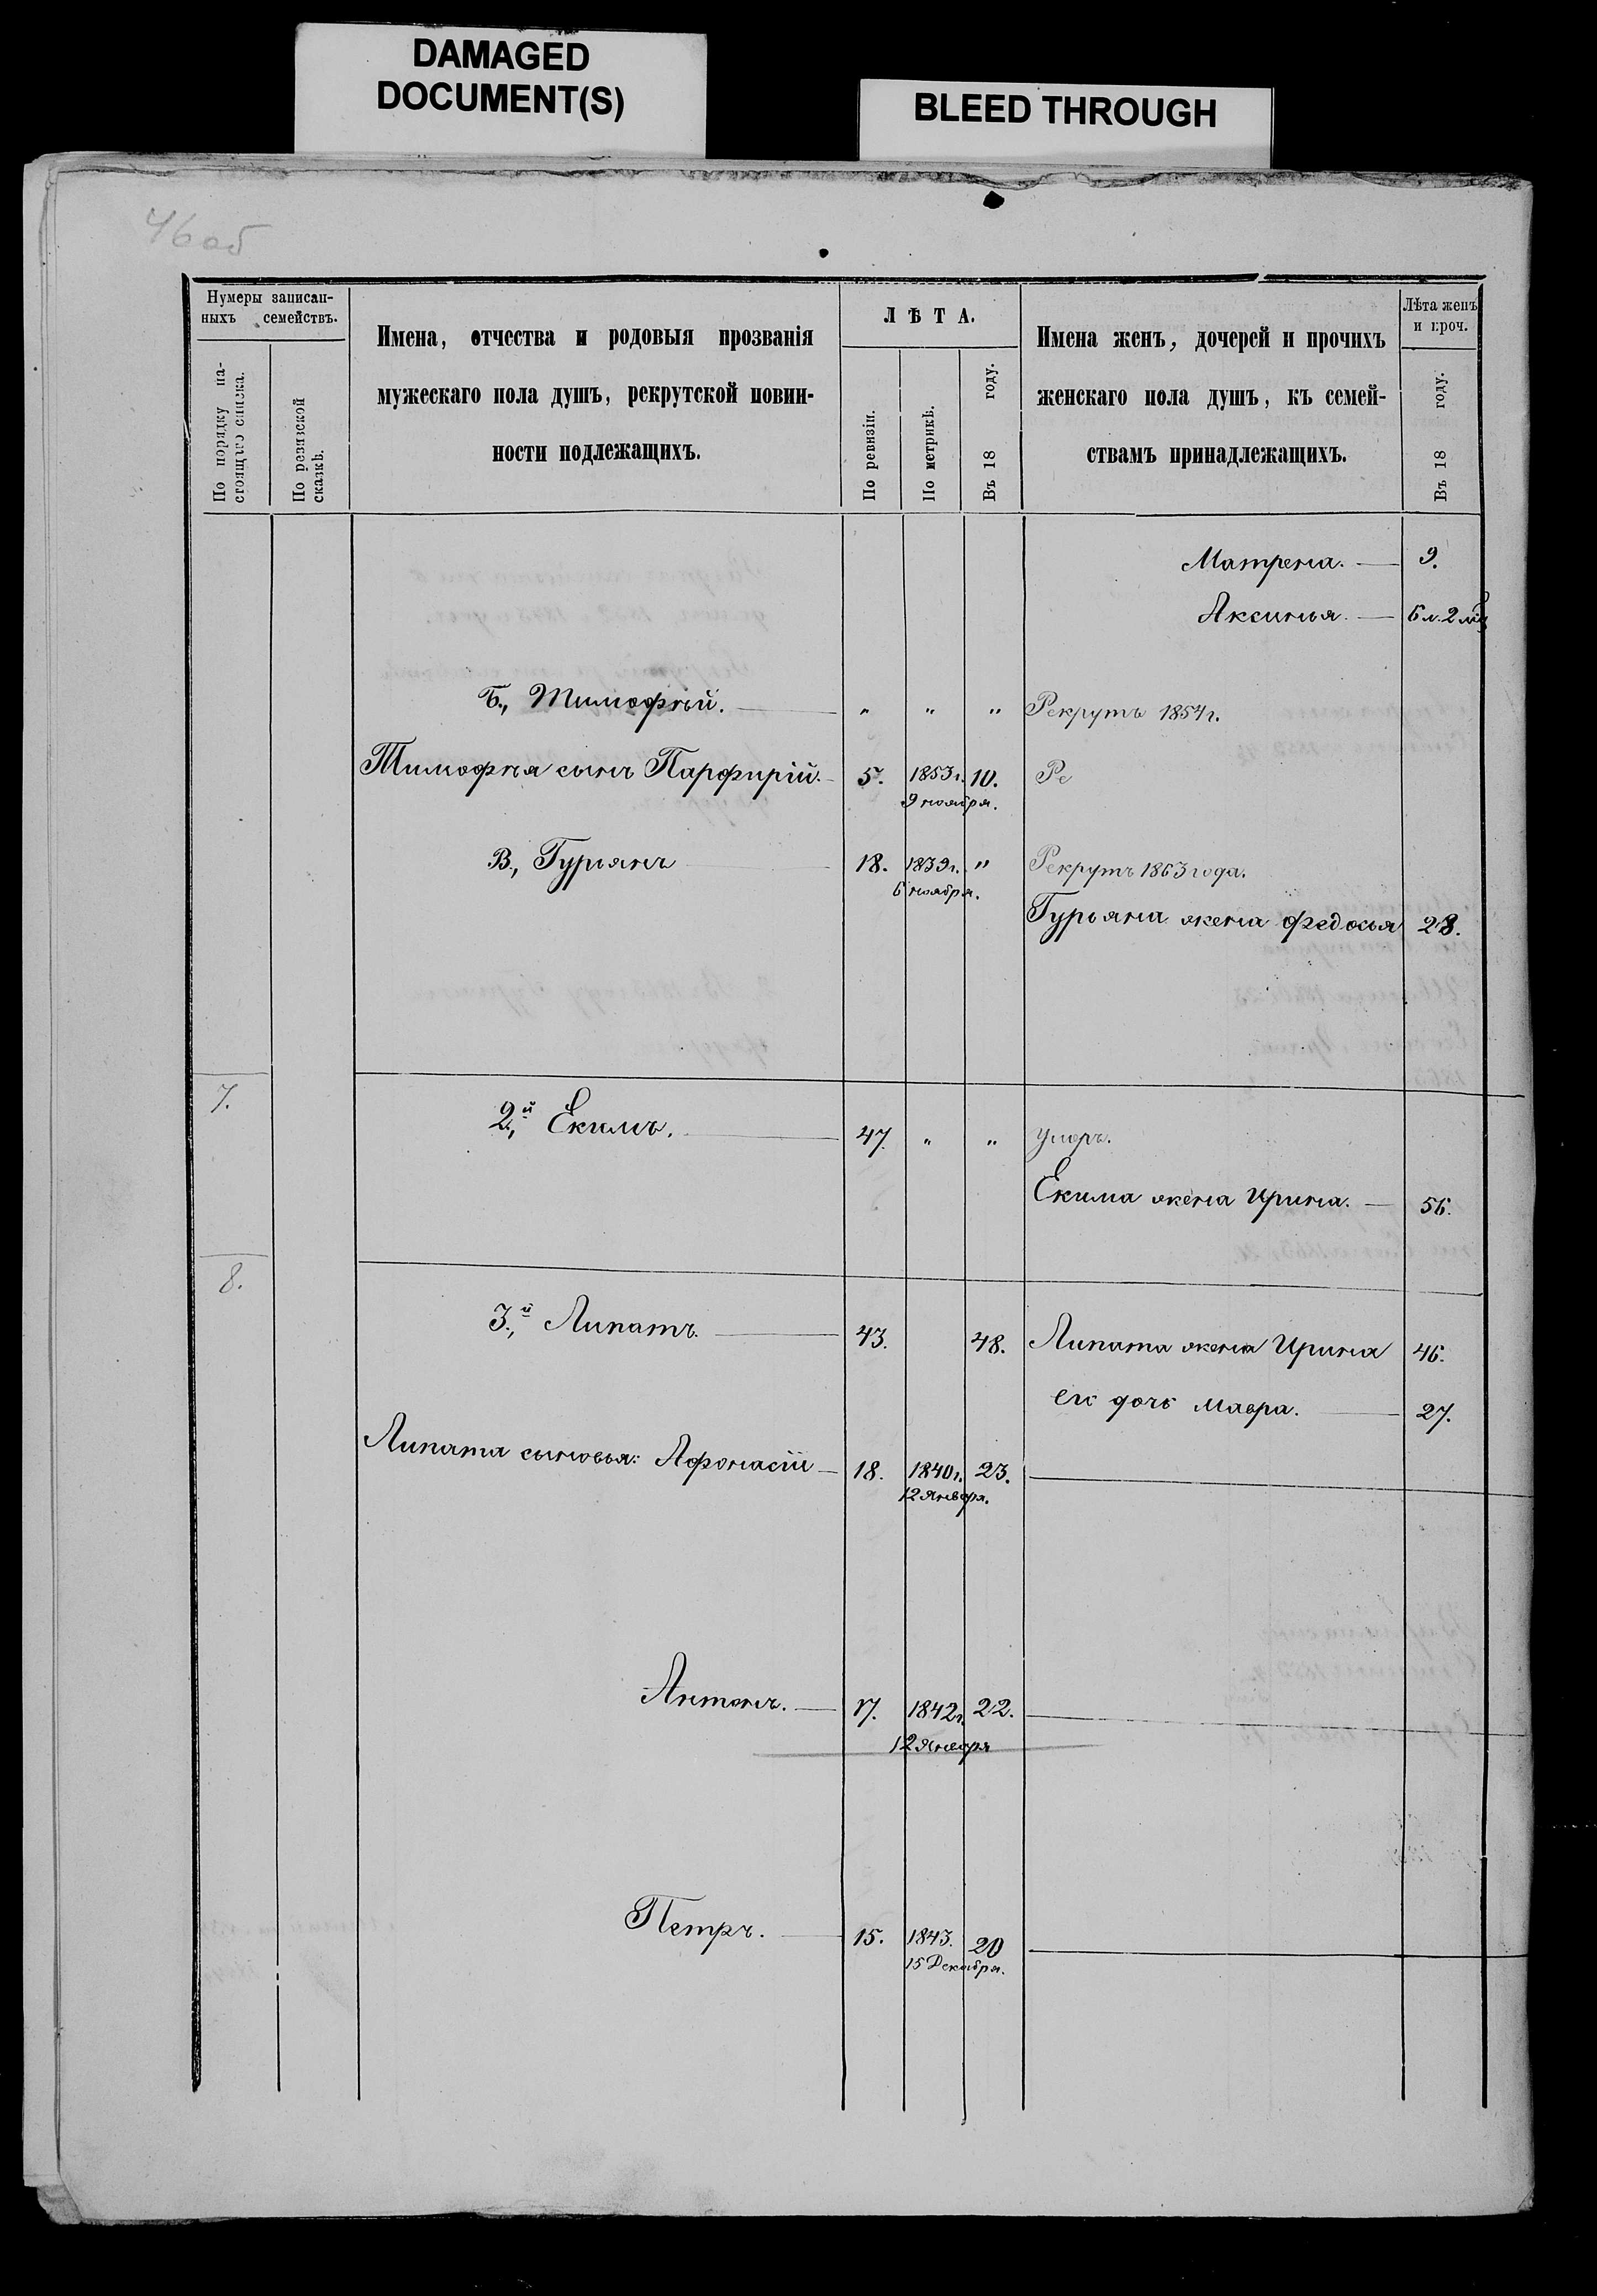 DAMAGED
DOCUMENT(S)
BLEED THROUGH
46 об
Нумеры записан-
ныхъ семействъ.
По порядку на-
стоящаго списка.
По ревизской
сказкѣ.
Имена, отчества и родовыя прозванія
мужескаго пола душъ, рекрутской повин-
ности подлежащихъ.
ЛѢТА.
По ревизіи.
По метрикѣ.
Въ 18 году.
Имена женъ, дочерей и прочихъ
женскаго пола душъ, къ семей-
ствамъ принадлежащихъ.
Лѣта женъ
и проч.
Въ 18 году.
Матрена. — 9.
Аксинья. — 6 л. 2 мц
Б., Тимофѣй. — " " " Рекрутъ 1854 г.
Тимофѣя сынъ Парфирій. — 5. 1853 г. 10. Ре
9 ноября.
В., Гурьянъ 18. 1839 г. " Рекрутъ 1863 года.
6 ноября.
Гурьяна жена Федосья 28.
7.
2й, Екимъ. — 47. " " умеръ.
Екима жена Ирина. — 56.
8.
3й, Липатъ. — 43. 48. Липата жена Ирина 46.
ея дочь Мавра. — 27.
Липата сыновья: Афонасій — 18. 1840 г. 23.
12 Января.
Антонъ. — 17. 1842 г. 22.
12 Января
Петръ. — 15. 1843. 20
15 Декабря.